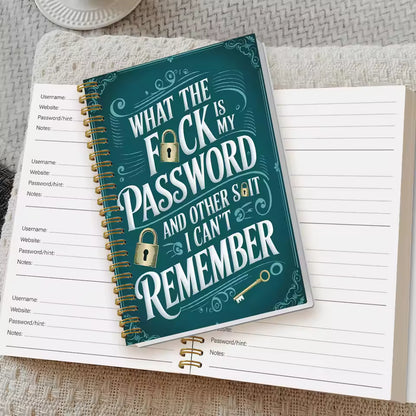 WHAT THE
F CK IS
MY
PASSWORD
AND OTHER S IT
I CAN'T
REMEMBER
Username:
Website:
Password/hint:
Notes:
Username:
Website:
Password/hint:
Notes:
Username:
Website:
Password/hint:
Notes:
Username:
Website:
Password/hint:
Notes:
Password/hint:
Notes: